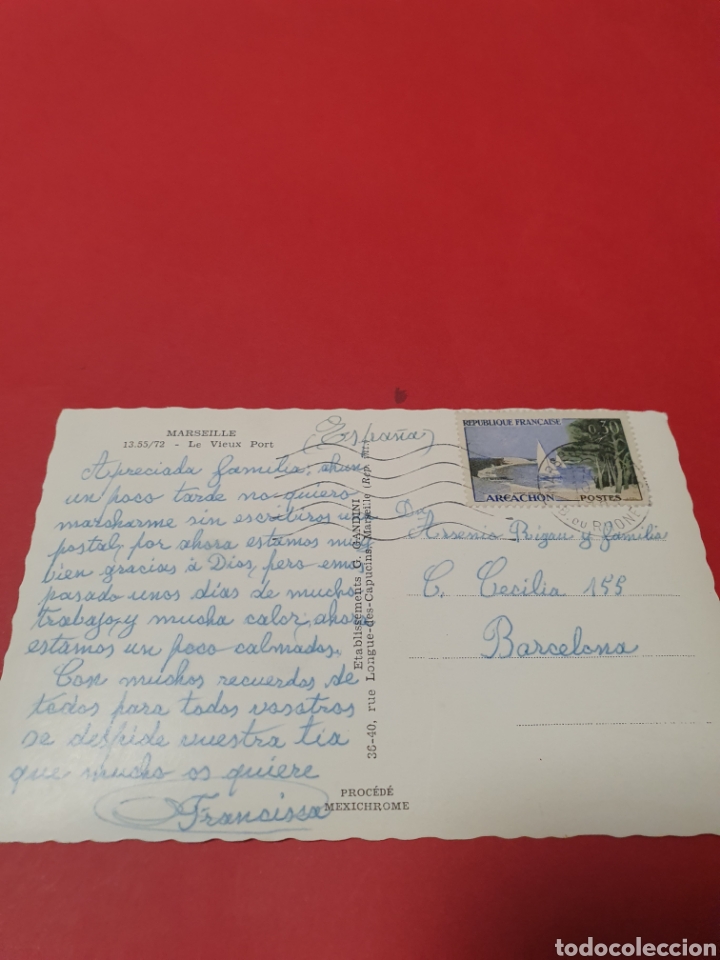 MARSEILLE
13.55/72 - Le Vieux Port
(España)
Apreciada familia; ahun
un poco tarde no quiero
marcharme sin escribiros una
postal, por ahora estamos muy
bien gracias á Dios, pero emos
pasado unos dias de mucho
trabajo, y mucha calor, ahora
estamos un poco calmados.
Con muchos recuerdos de
todos para todos vosotros
se despide vuestra tia
que mucho os quiere
Francisca
Etablissements G. GANDINI
36-40, rue Longue-des-Capucins, Marseille (Rep. int.)
PROCÉDÉ
MEXICHROME
REPUBLIQUE FRANÇAISE
0,30
ARCACHON POSTES
DU RHONE
Arsenio Rigau y familia
C. Cecilia 155
Barcelona
todocoleccion